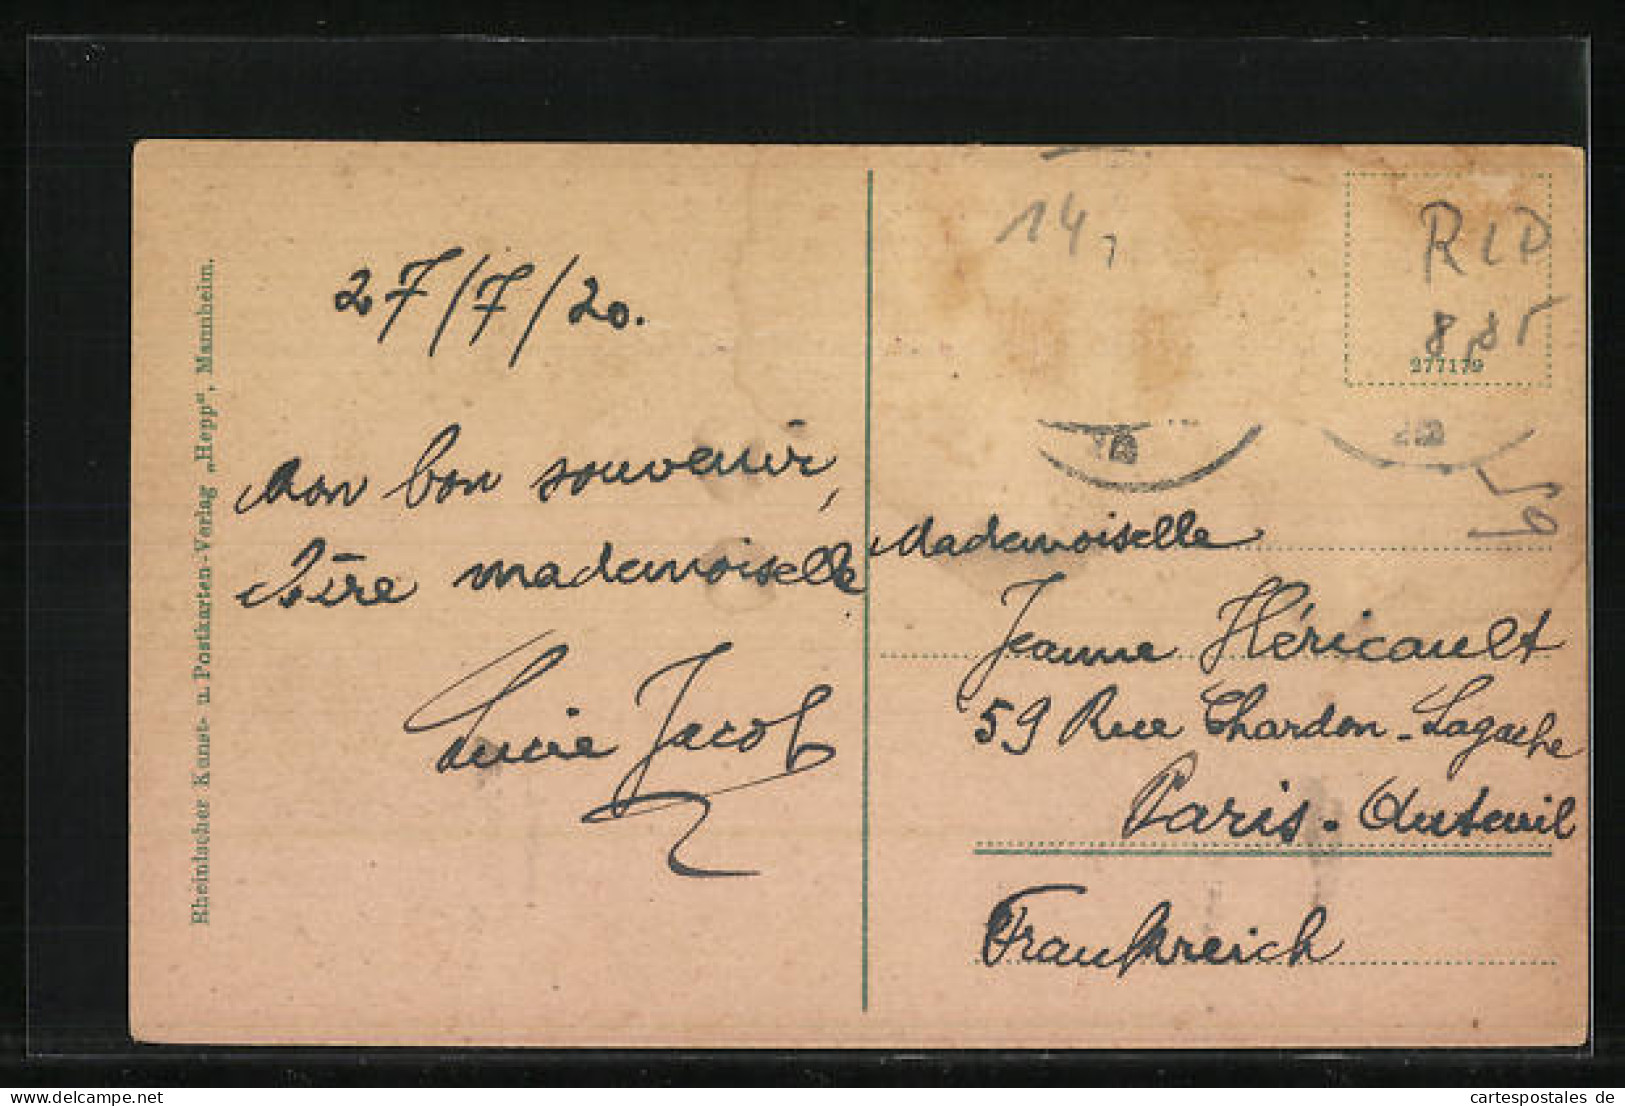 27/7/20.
Mon bon souvenir,
chère mademoiselle
Lucie Jacob
Rheinischer Kunst- u. Postkarten-Verlag „Hepp", Mannheim.
14,
8,85
277179
Mademoiselle
Jeanne Héricault
59 Rue Chardon-Lagache
Paris. Auteuil
Frankreich
cartespostales de